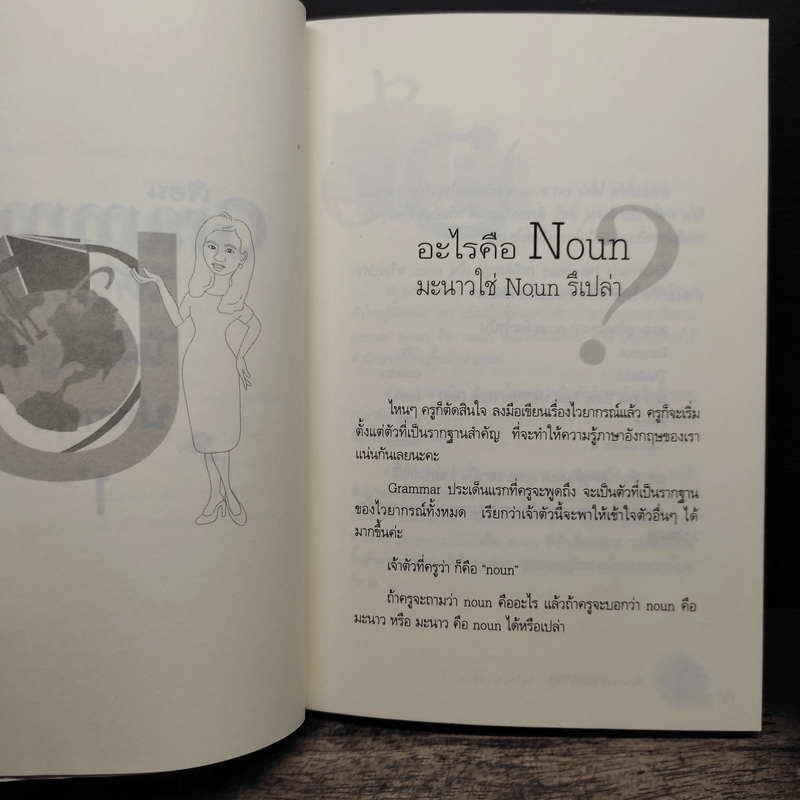 อะไรคือ Noun ?
มะนาวใช่ Noun รึเปล่า
ไหนๆ ครูก็ตัดสินใจ ลงมือเขียนเรื่องไวยากรณ์แล้ว ครูก็จะเริ่ม
ตั้งแต่ตัวที่เป็นรากฐานสำคัญ ที่จะทำให้ความรู้ภาษาอังกฤษของเรา
แน่นกันเลยนะคะ
Grammar ประเด็นแรกที่ครูจะพูดถึง จะเป็นตัวที่เป็นรากฐาน
ของไวยากรณ์ทั้งหมด เรียกว่าเจ้าตัวนี้จะพาให้เข้าใจตัวอื่นๆ ได้
มากขึ้นค่ะ
เจ้าตัวที่ครูว่า ก็คือ “noun”
ถ้าครูจะถามว่า noun คืออะไร แล้วถ้าครูจะบอกว่า noun คือ
มะนาว หรือ มะนาว คือ noun ได้หรือเปล่า